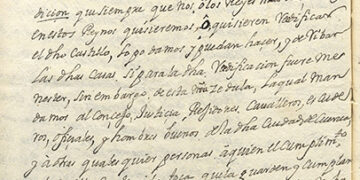 dicion que siempre que nos, o los Reyes
en estos Reynos quisieremos, ô quisieren reedificar
el dho Castillo, lo podamos y puedan hacer, y derribar
las dhas Casas, si para la dha reedificacion fuere me
nester, sin embargo, de esta ñra Zedula, la qual man
damos al Conçejo, Justicia, Regidores, Cavalleros, escude
ros, ofiçiales, y hombres buenos de la dha Ciudad de Cuenca
y à otras quales quier personas, à quien el Cumplimto,
que la guarden y Cumplan